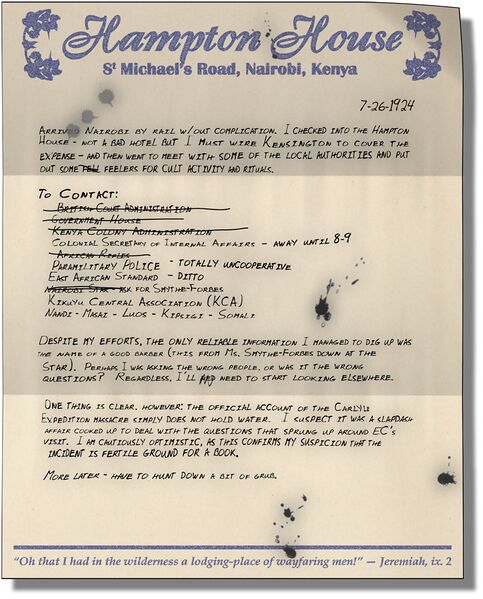 Hampton House
St Michael's Road, Nairobi, Kenya
7-26-1924
Arrived Nairobi by rail w/out complication. I checked into the Hampton
House - not a bad hotel but I must wire Kensington to cover the
expense - and then went to meet with some of the local authorities and put
out some feelers for cult activity and rituals.
To Contact:
British Court Administration
Government House
Kenya Colony Administration
Colonial Secretary of Internal Affairs - away until 8-9
African Rifles
Paramilitary Police - totally uncooperative
East African Standard - ditto
Nairobi Star - ask for Smythe-Forbes
Kikuyu Central Association (KCA)
Nandi - Masai - Luos - Kipsigi - Somali
Despite my efforts, the only reliable information I managed to dig up was
the name of a good barber (this from Ms. Smythe-Forbes down at the
Star). Perhaps I was asking the wrong people, or was it the wrong
questions? Regardless, I'll need to start looking elsewhere.
One thing is clear, however: the official account of the Carlyle
Expedition massacre simply does not hold water. I suspect it was a slapdash
affair cooked up to deal with the questions that sprung up around EC's
visit. I am cautiously optimistic, as this confirms my suspicion that the
incident is fertile ground for a book.
More later - have to hunt down a bit of grub.
"Oh that I had in the wilderness a lodging-place of wayfaring men!" — Jeremiah, ix. 2